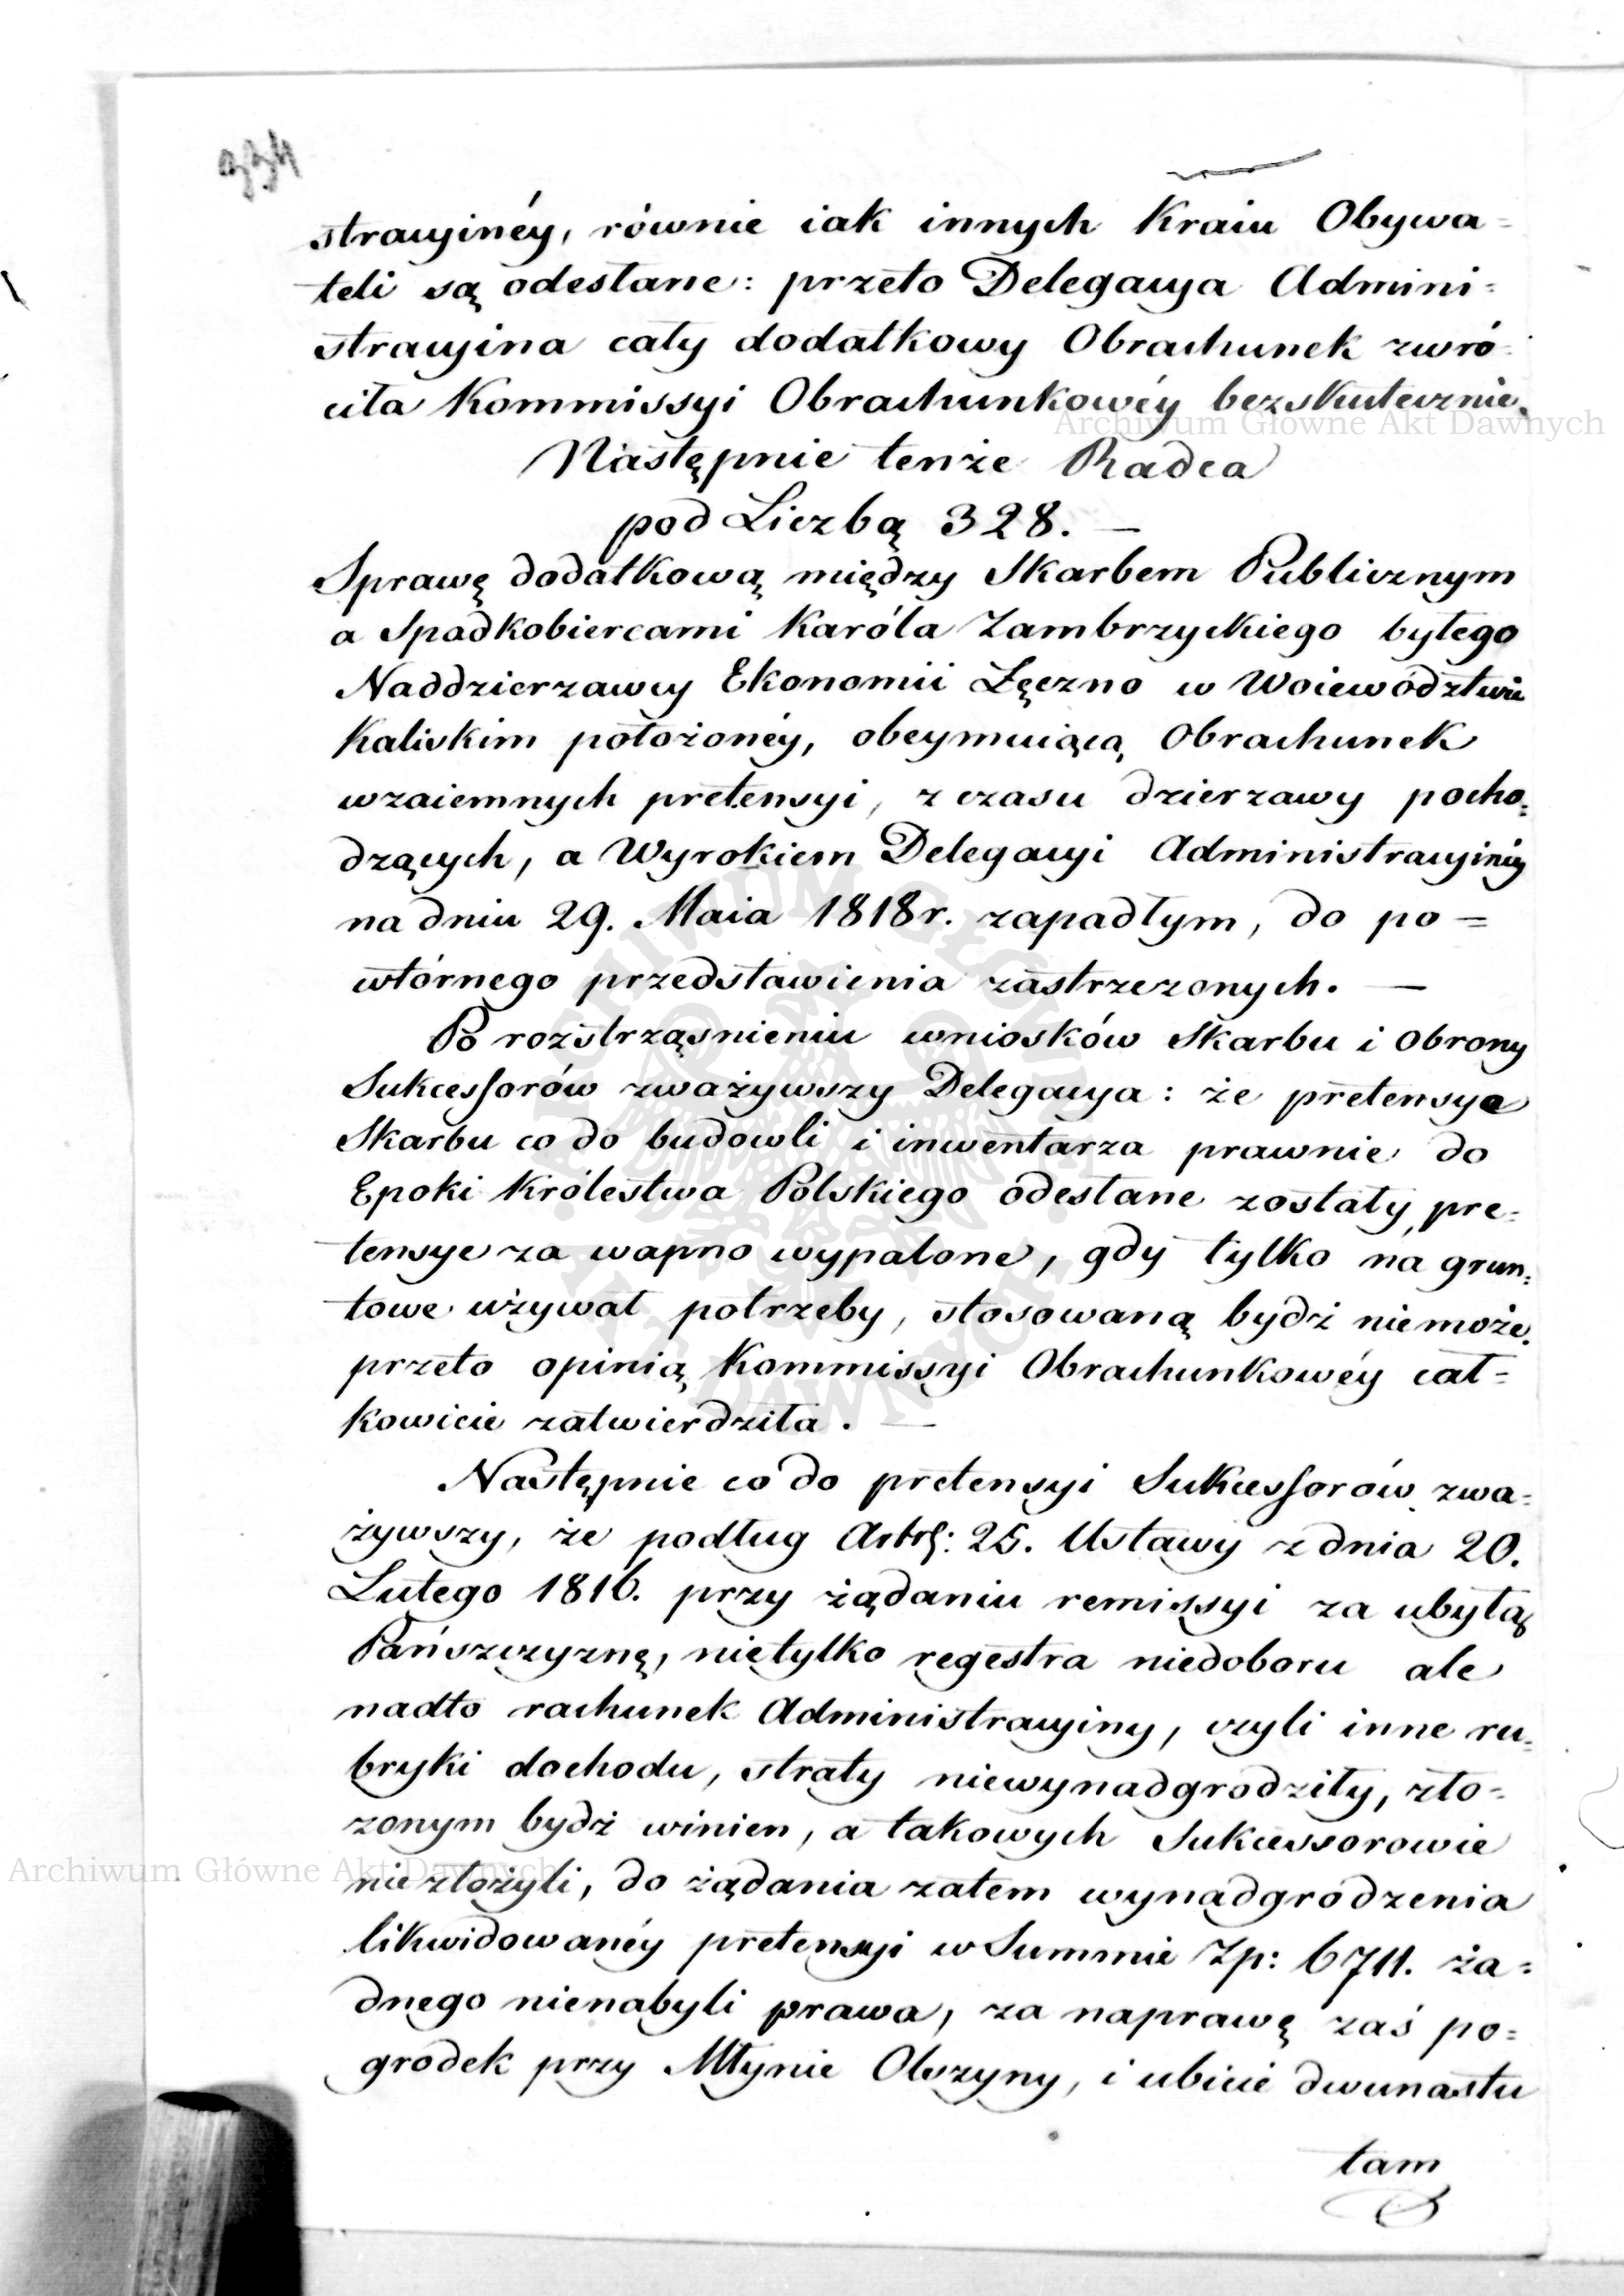 334
stracyinéy, równie iak innych Kraiu Obywa=
teli są odesłane: przeto Delegacya Admini=
stracyina cały dodatkowy Obrachunek zwró=
ciła Kommissyi Obrachunkowéy bezskutecznie.
Następnie tenże Radca
pod Liczbą 328. —
Sprawę dodatkową między Skarbem Publicznym
a Spadkobiercami Karóla Zambrzyckiego byłego
Naddzierzawcy Ekonomii Łęczno w Woiewództwie
Kaliskim położonéy, obeymuiącą Obrachunek
wzaiemnych pretensyi, z czasu dzierzawy pocho=
dzących, a Wyrokiem Delegacyi Administracyinéy
na dniu 29. Maia 1818 r. zapadłym, do po=
wtórnego przedstawienia zastrzeżonych. —
Po roztrząśnieniu wniosków Skarbu i obrony
Sukcessorów zważywszy Delegacya: że pretensye
Skarbu co do budowli i inwentarza prawnie do
Epoki Królestwa Polskiego odesłane zostały, pre=
tensye za wapno wypalone, gdy tylko na grun=
towe używał potrzeby, stosowaną bydź niemoże,
przeto opinią Kommissyi Obrachunkowéy cał=
kowicie zatwierdziła. —
Następnie co do pretensyi Sukcessorów zwa=
żywszy, że podług Artł: 25. Ustawy z dnia 20.
Lutego 1816. przy żądaniu remissyi za ubyłą
Pańszczyznę, nietylko regestra niedoboru ale
nadto rachunek Administracyiny, czyli inne ru=
bryki dochodu, straty niewynadgrodziły, zło=
zonym bydź winien, a takowych Sukcessorowie
nie złożyli, do żądania zatem wynadgrodzenia
likwidowanéy pretensyi w Summie Zp: 6711. ża=
dnego nienabyli prawa, za naprawę zaś po=
grodek przy Młynie Olszyny, i ubicie dwunastu
tam
Archiwum Główne Akt Dawnych
Archiwum Główne Akt Dawnych
ARCHIWUM GŁÓWNE AKT DAWNYCH